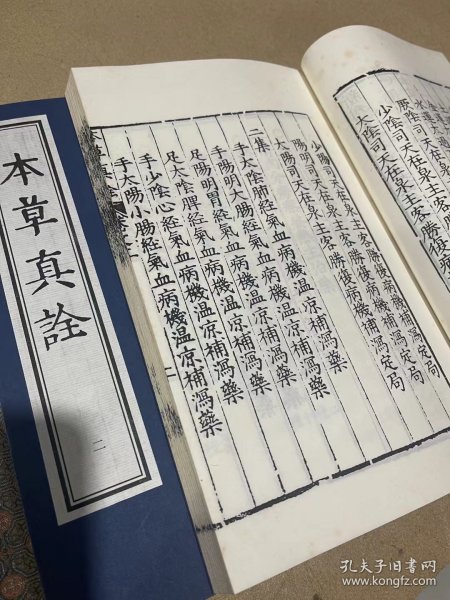 本草真詮
二
厥陰司天在泉主客勝復病
少陰司天在泉主客勝復病機補瀉定局
太陰司天在泉主客勝復病機補瀉定局
少陽司天在泉主客勝復病機補瀉定局
太陽司天在泉主客勝復病機補瀉定局
二集
手太陰肺經氣血病機溫凉補瀉藥
手陽明大腸經氣血病機溫凉補瀉藥
足陽明胃經氣血病機溫凉補瀉藥
足太陰脾經氣血病機溫凉補瀉藥
手少陰心經氣血病機溫凉補瀉藥
手太陽小腸經氣血病機溫凉補瀉藥
孔夫子旧书网
www.kongfz.com